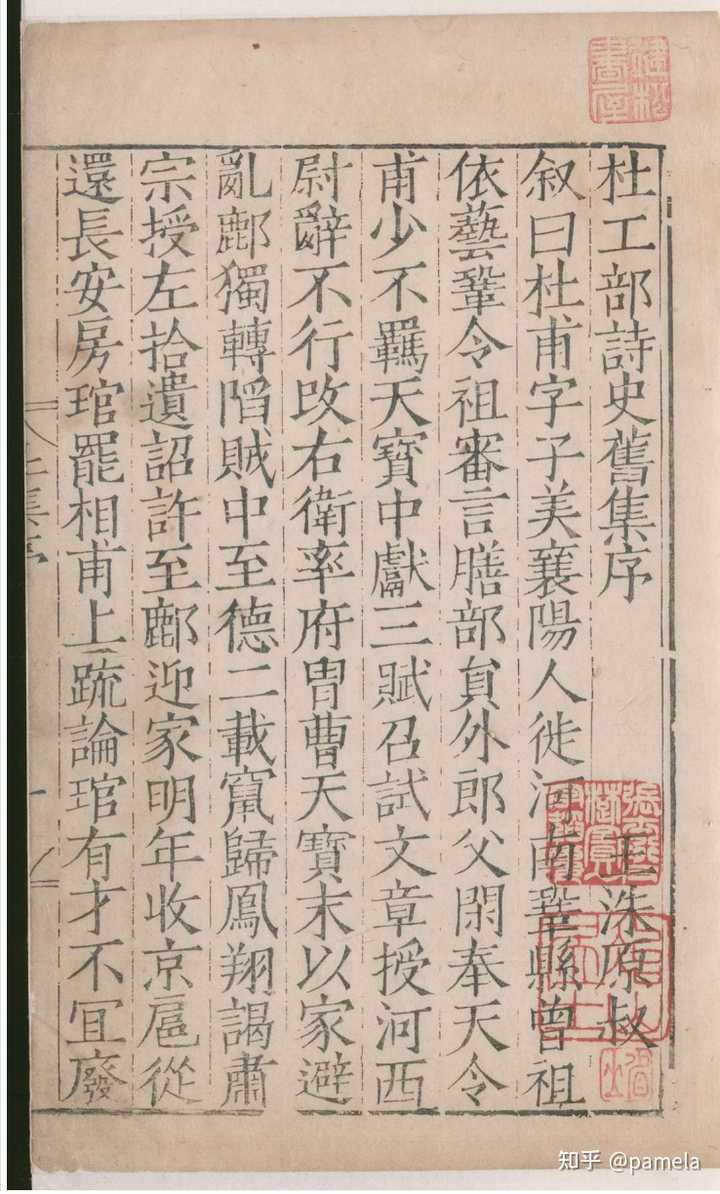 杜工部詩史舊集序
王洙原叔
叙曰杜甫字子美襄陽人徙河南鞏縣曾祖
依藝鞏令祖審言膳部貟外郎父閑奉天令
甫少不羈天寶中獻三賦召試文章授河西
尉辭不行改右衛率府胄曹天寶末以家避
亂鄜獨轉陷賊中至德二載竄歸鳳翔謁肅
宗授左拾遺詔許至鄜迎家明年收京扈從
還長安房琯罷相甫上疏論琯有才不宜廢
知乎 @pamela